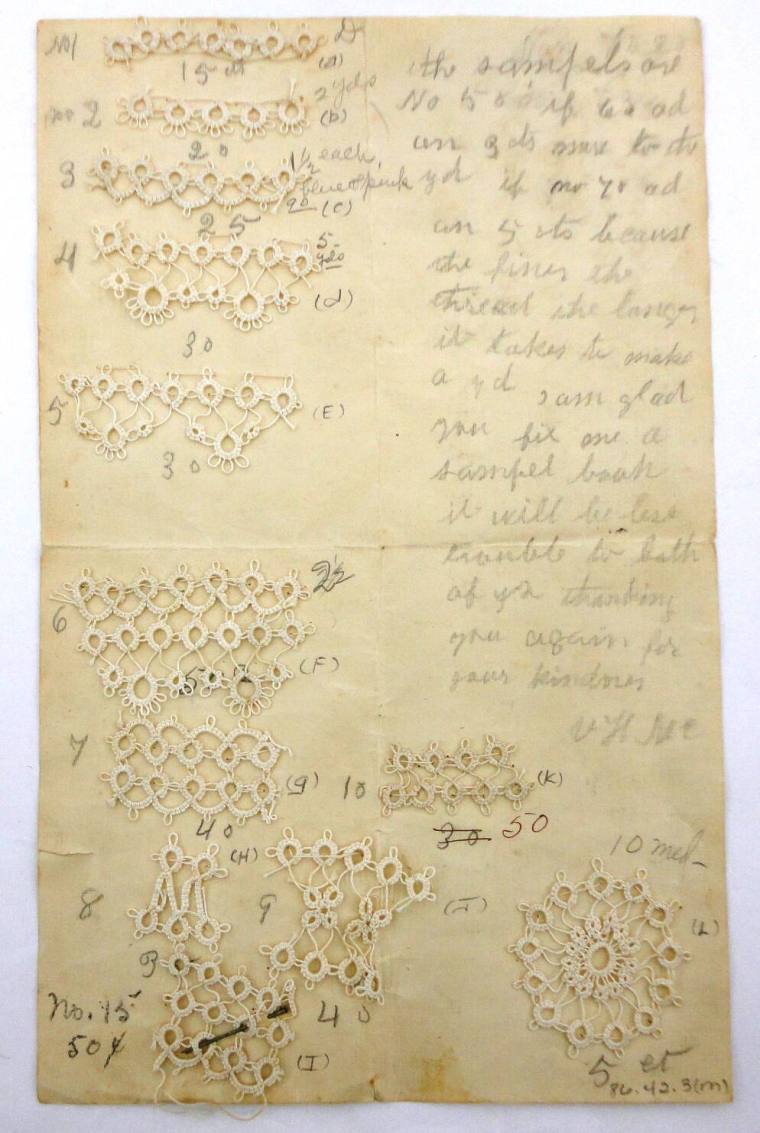 No 1
(a)
15 ct
2 yds
no 2
(b)
20
3
1½ each
blue & pink
90 (c)
25
4
5
yds
(d)
30
5
(E)
30
6
2½
(F)
50
7
(g)
40
10
(K)
30 50
8
(H)
9
(J)
40
No. 15
50¢
(I)
the sampels are
No 50 if 60 ad
on 3 cts more to the
yd if no 70 ad
on 5 cts because
the finer the
thread the longer
it takes to make
a yd I am glad
you fix me a
sampel book
it will be less
trouble to both
of us thanking
you again for
your kindness
10 med
(L)
5 ct
86.42.3(m)